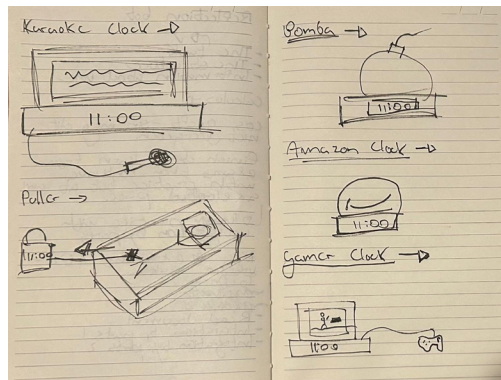 Karaoke Clock →
11:00
Puller →
11:00
Bomba →
11:00
Amazon Clock →
11:00
Gamer Clock →
11:00